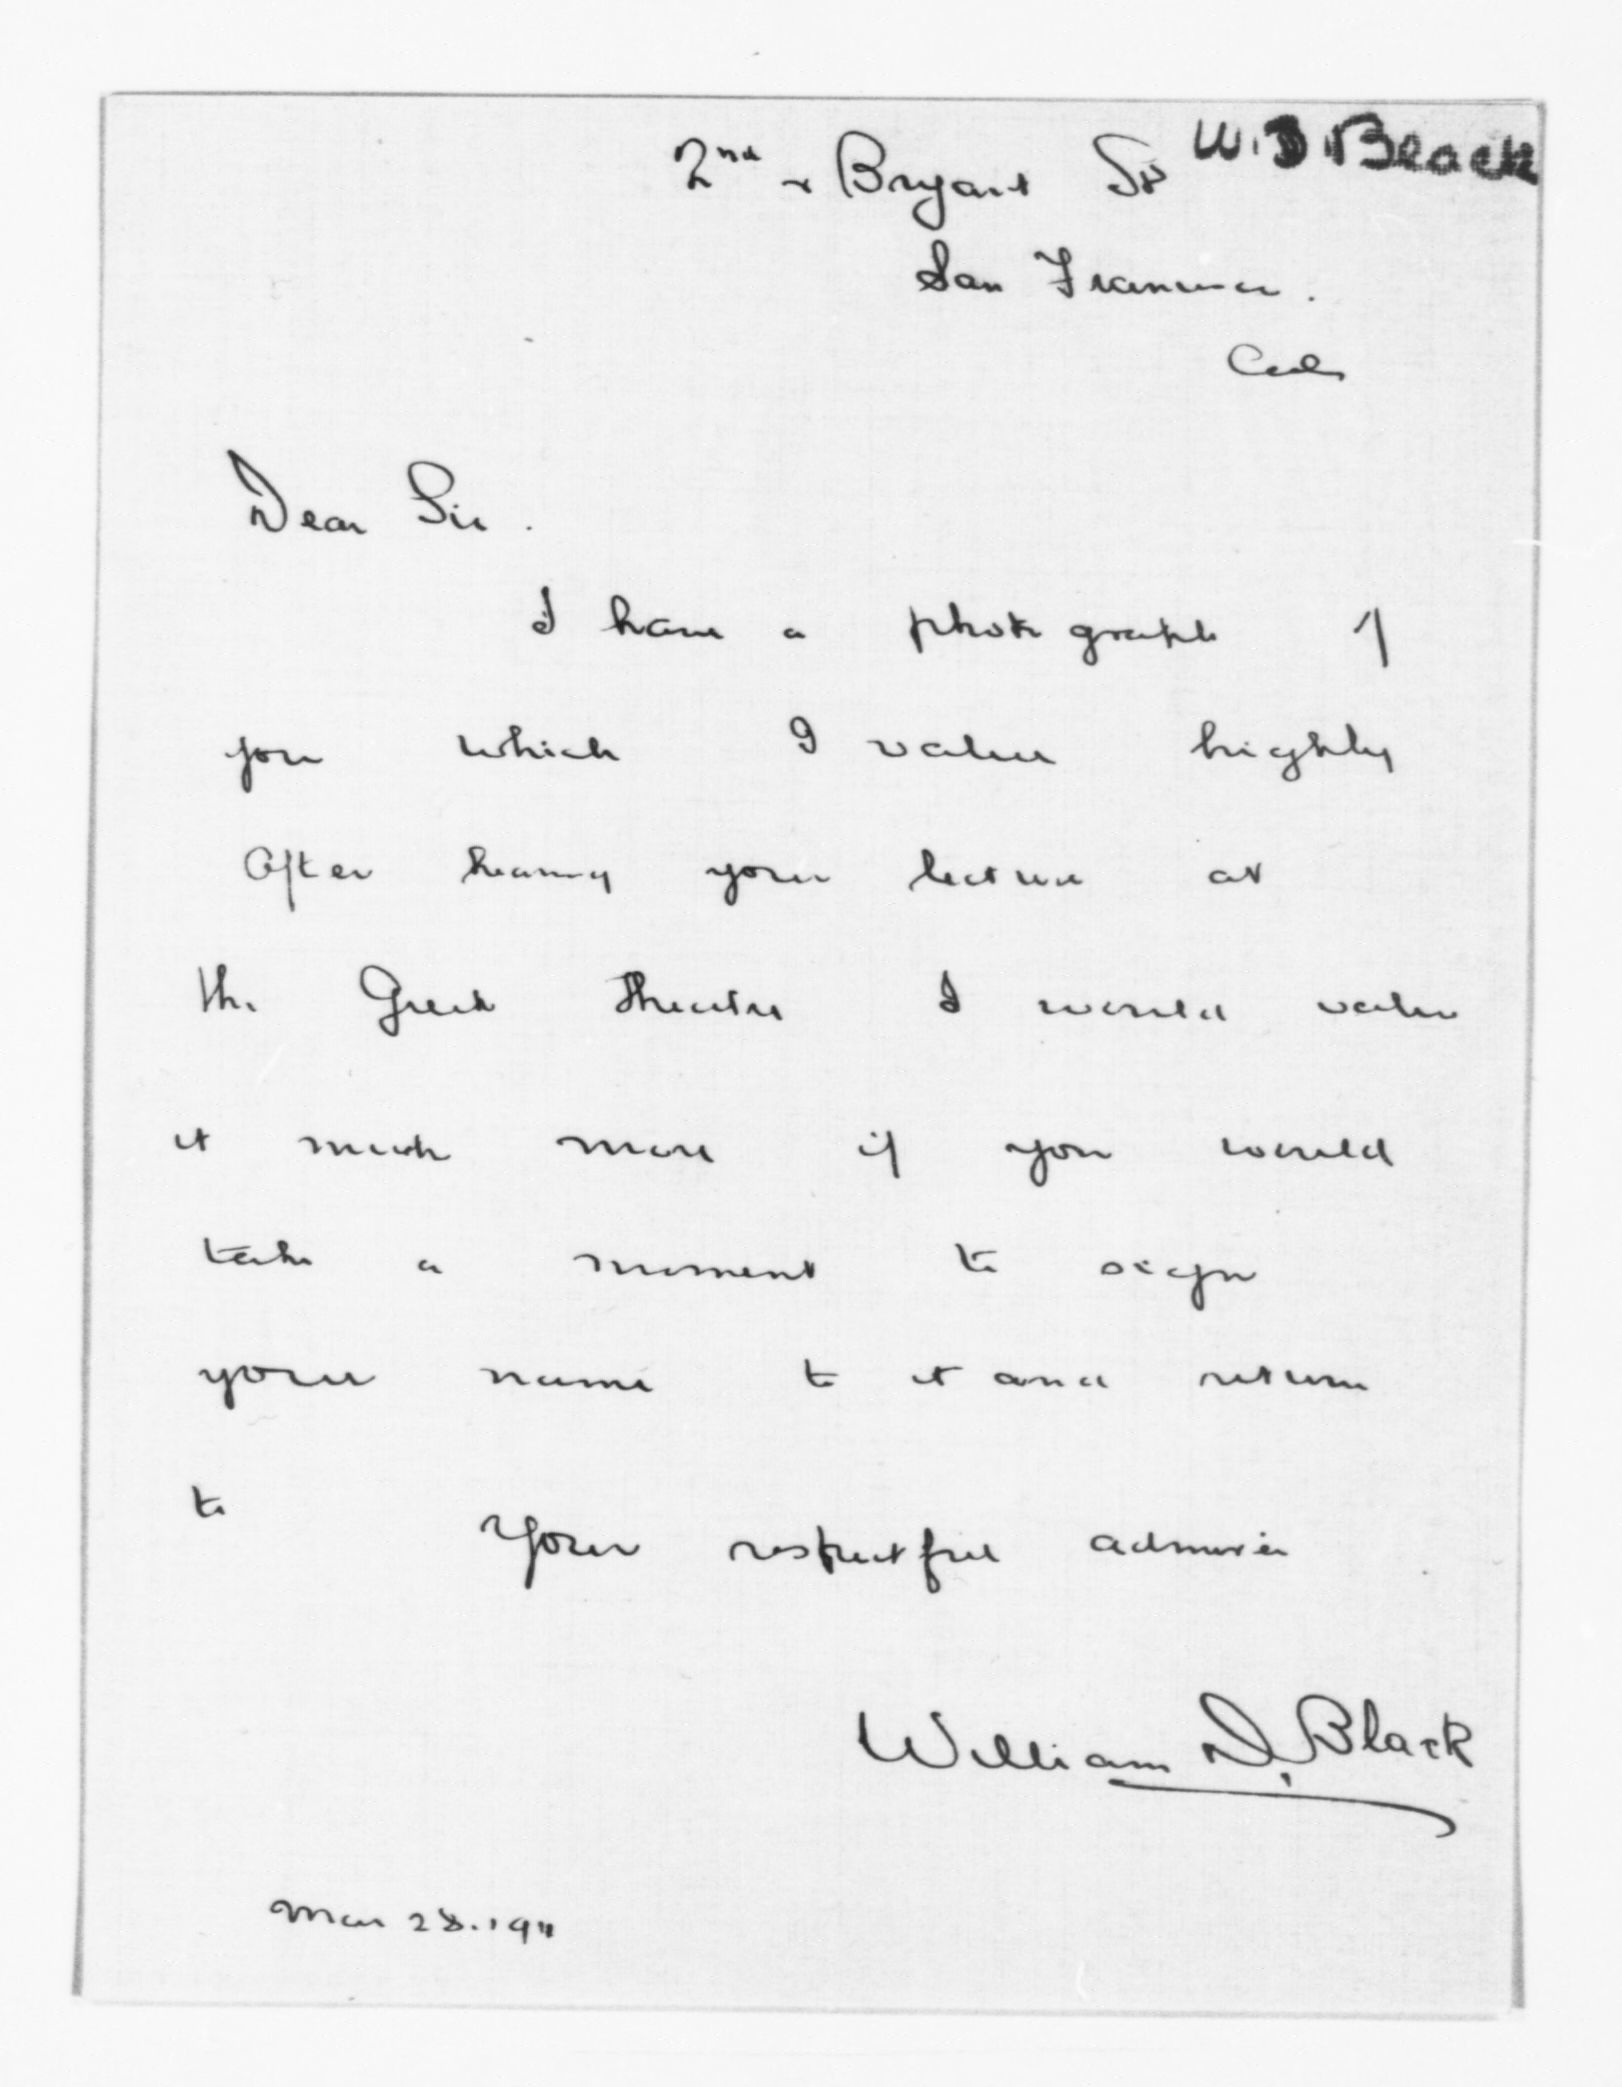 W. D. Black
2nd & Bryant St
San Francisco.
Cal
Dear Sir.
I have a photograph of
you which I value highly
After hearing your lecture at
the Greek Theatre I would value
it much more if you would
take a moment to sign
your name to it and return
to
Your respectful admirer
William D. Black
Mar 28. 1911